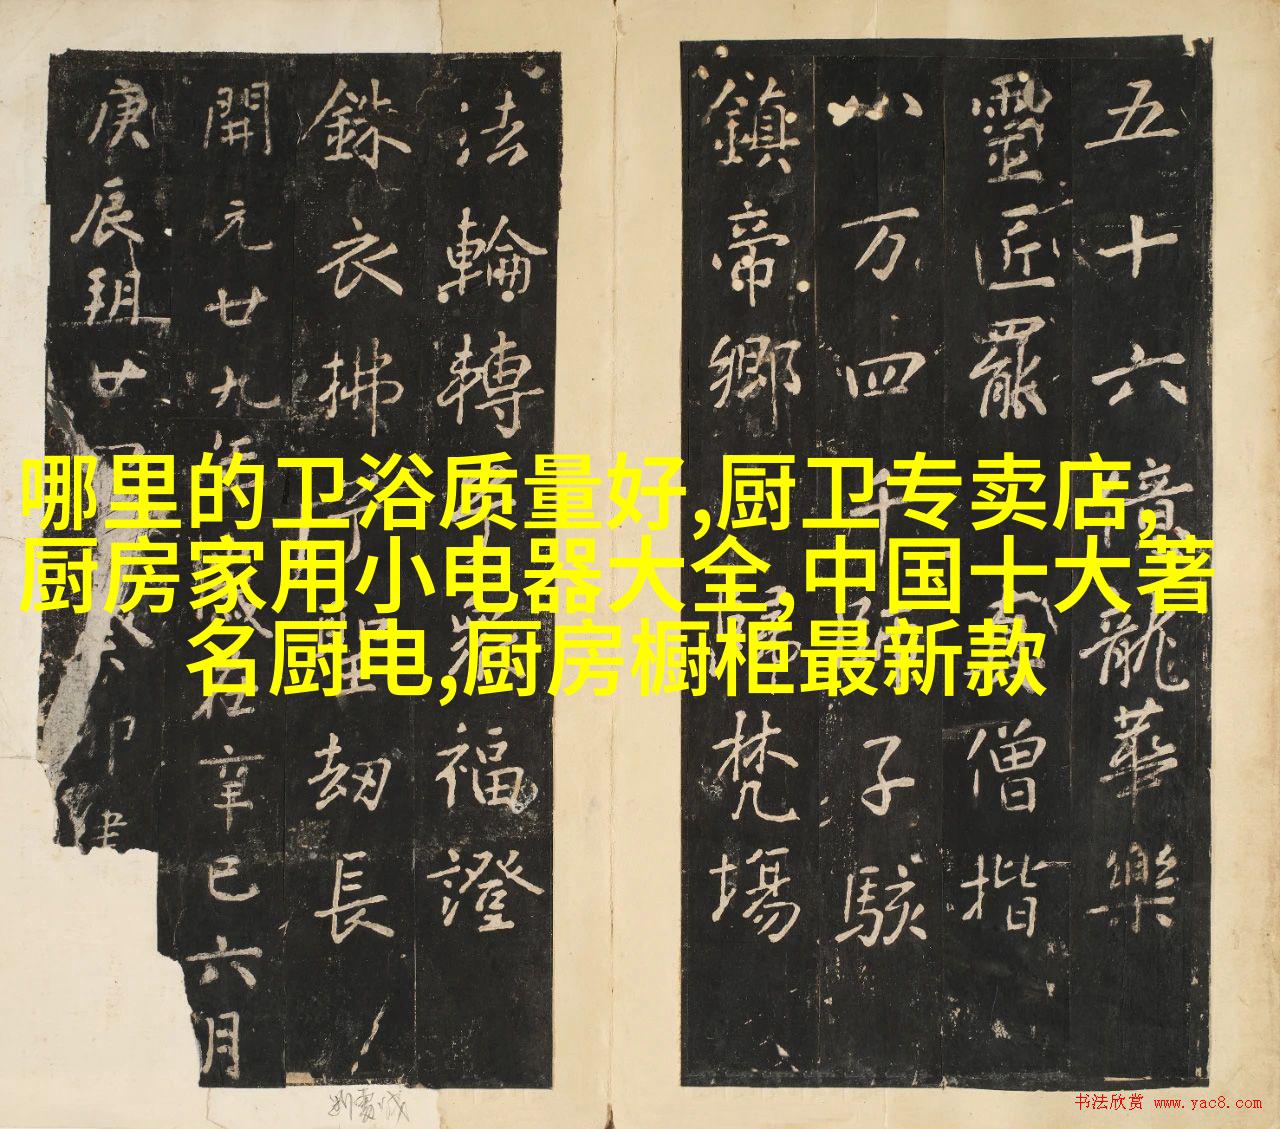 哪里的卫浴质量好,厨卫专卖店,
厨房家用小电器大全,中国十大著
名厨电,厨房橱柜最新款
五十六龍華樂
靈匠罷僧揩
八万四千子駭
鎮帝鄉歸梵場
法輪轉福證
銖衣拂劫長
開元廿九年在辛巳六月
庚辰朔廿癸卯建
书法欣赏 www.yac8.com